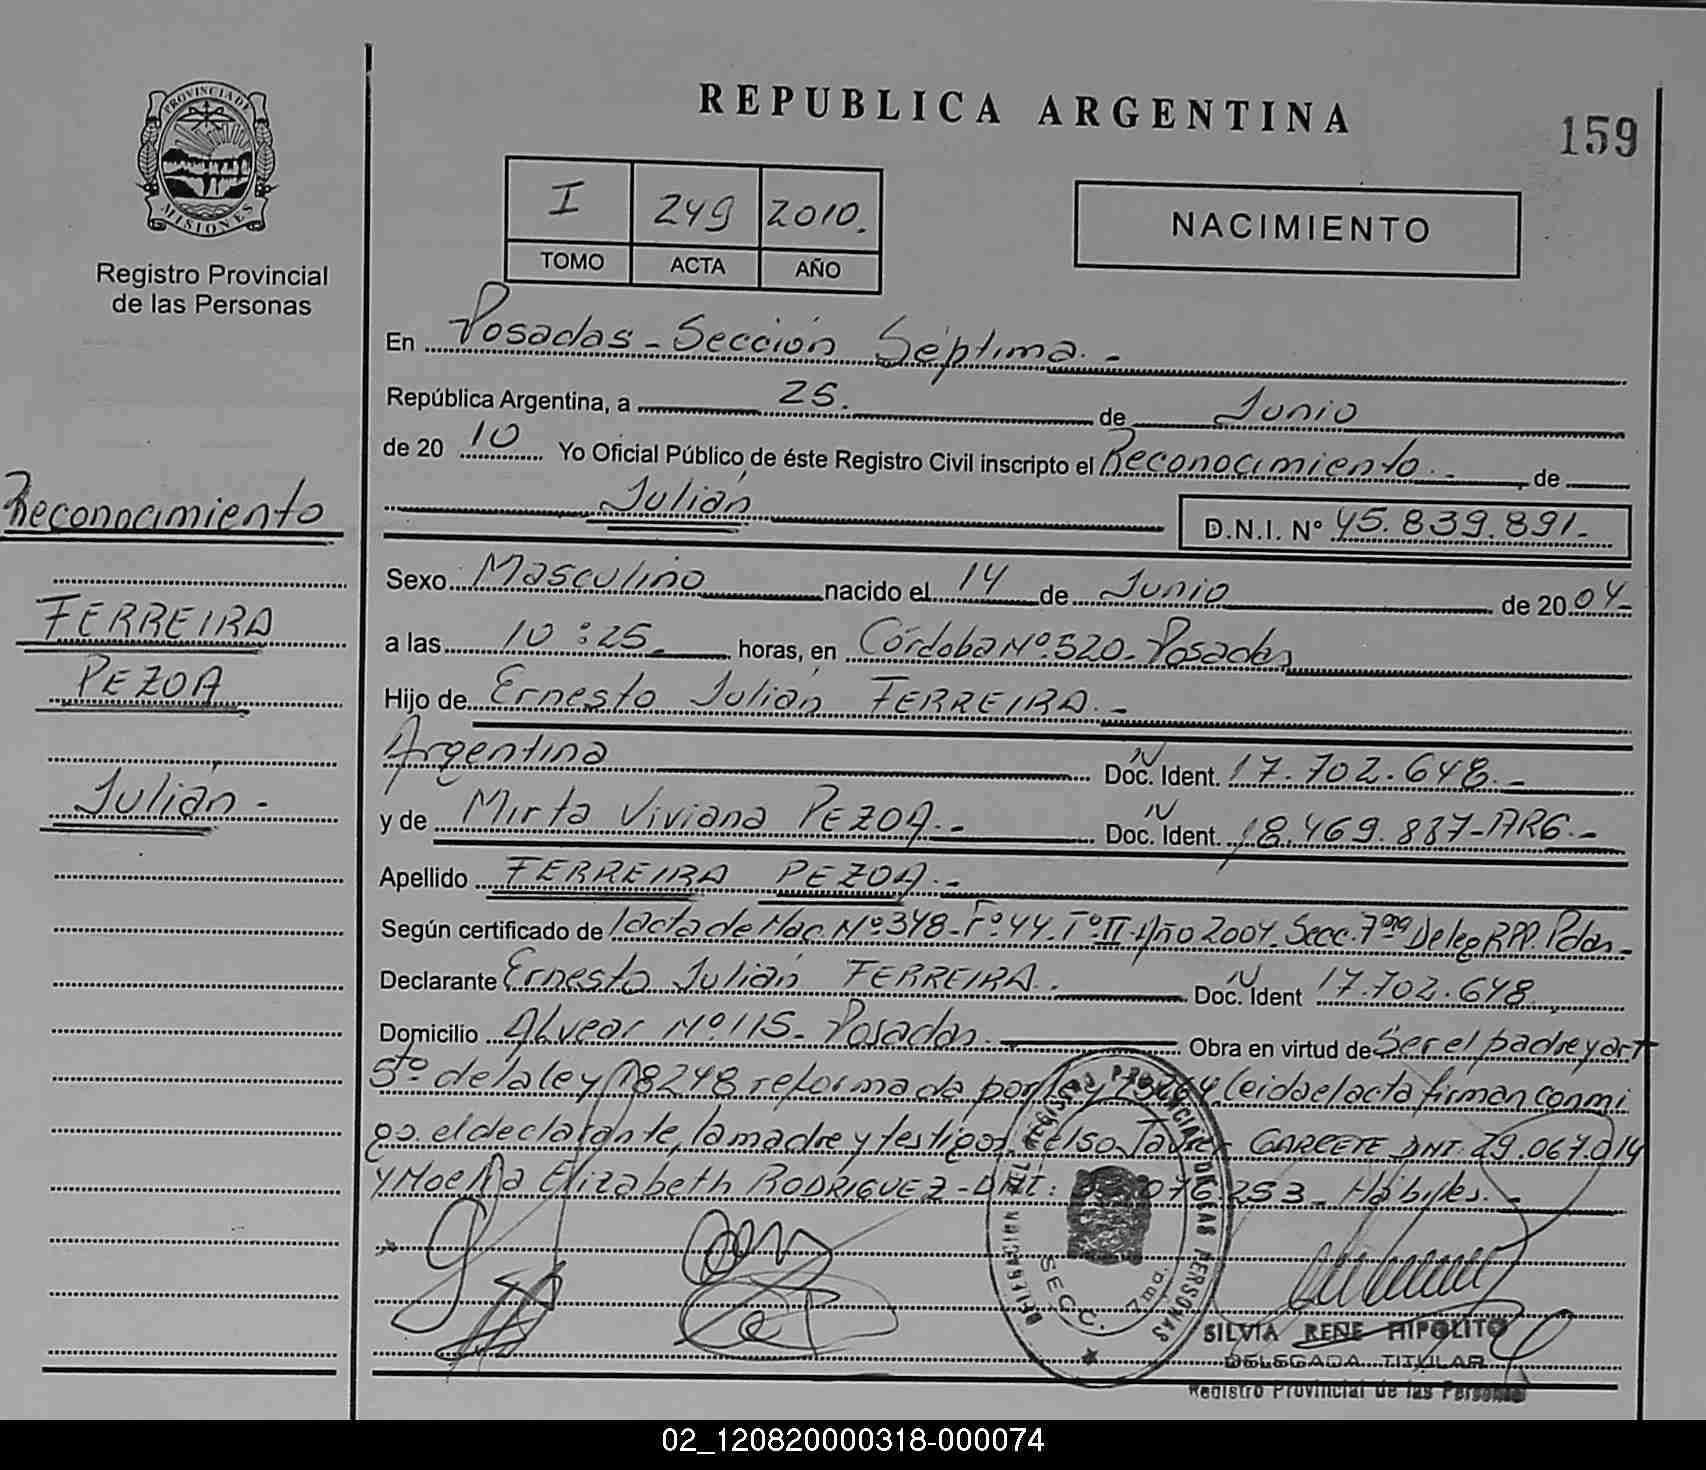 REPUBLICA ARGENTINA
159
PROVINCIA DE
MISIONES
Registro Provincial
de las Personas
I 249 2010.
TOMO ACTA AÑO
NACIMIENTO
En Posadas - Sección Séptima. -
República Argentina, a 25. de Junio
de 20 10 Yo Oficial Público de éste Registro Civil inscripto el Reconocimiento. - de
Julián
D.N.I. N° 45.839.891.-
Reconocimiento
FERREIRA
PEZOA
Julián -
Sexo Masculino nacido el 14 de Junio de 20 04.-
a las 10:25 horas, en Córdoba Nº 520 - Posadas
Hijo de Ernesto Julián FERREIRA. -
Argentina Doc. Ident. N 17.702.648. -
y de Mirta Viviana PEZOA. - Doc. Ident. N 18.469.887-ARG. -
Apellido FERREIRA PEZOA. -
Según certificado de /acta de Nac. Nº 348 - Fº 44 - Tº II - Año 2004. Secc. 7ma Deleg RPP. Pdas -
Declarante Ernesto Julián FERREIRA. Doc. Ident N 17.702.648
Domicilio Alvear Nº 115 - Posadas. Obra en virtud de Ser el padre y art
5to de la ley 18248 reformada por ley Leida el acta firman conmi
go. el declarante, la madre y testigos. GARCETE DNI: 29.067.014
y Elizabeth RODRIGUEZ - DNI: 253 - Hábiles. -
DELEGACION DEL REGISTRO PROVINCIAL DE LAS PERSONAS
SECC. 7ma.
SILVIA RENE HIPOLITO
DELEGADA TITULAR
Registro Provincial de las Personas
02_120820000318-000074